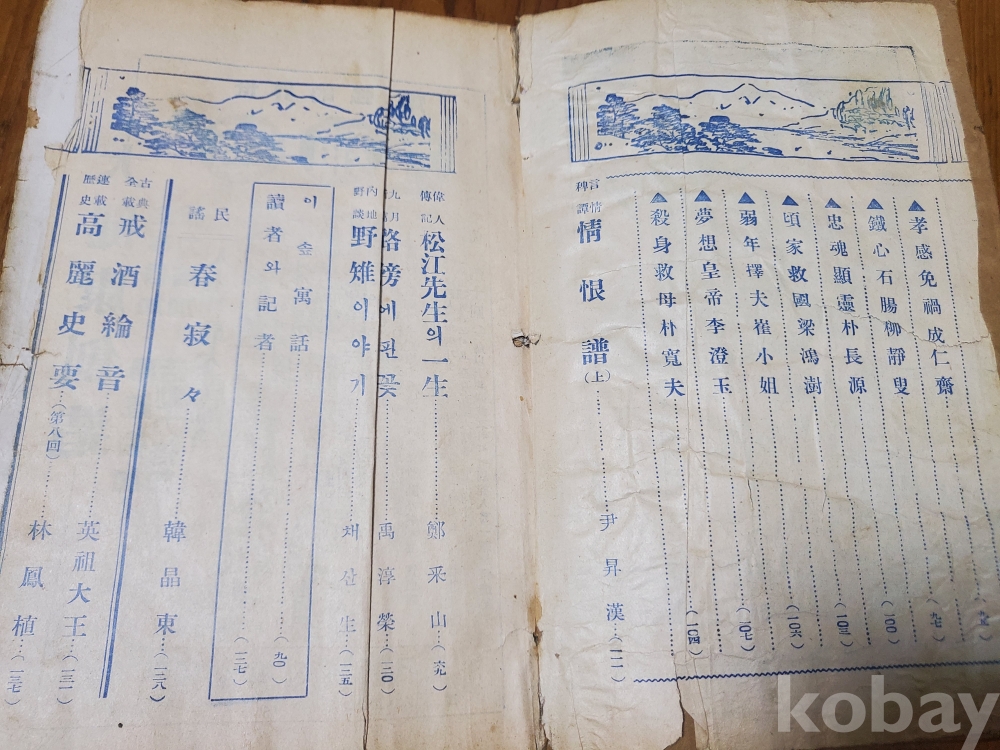 ▲孝感免禍成仁齋
▲鐵心石腸柳靜叟 (一〇〇)
▲忠魂顯靈朴長源 (一〇三)
▲頃家救國梁鴻澍 (一〇六)
▲弱年擇夫崔小姐 (一〇七)
▲夢想皇帝李澄玉 (一〇四)
▲殺身救母朴寬夫
情恨譜(上) 尹昇漢
偉人傳記 松江先生의一生 鄭采山
路傍에핀꽃 禹淳榮 (一二〇)
野談 野雉이야기 生 (一三五)
이솝寓話 (九〇)
讀者와記者 (一二七)
民謠 春寂々 韓晶東 (一三八)
古典全載 戒酒綸音 英祖大王 (一三一)
歷史連載 高麗史要(第八回) 林鳳植 (一三七)
kobay